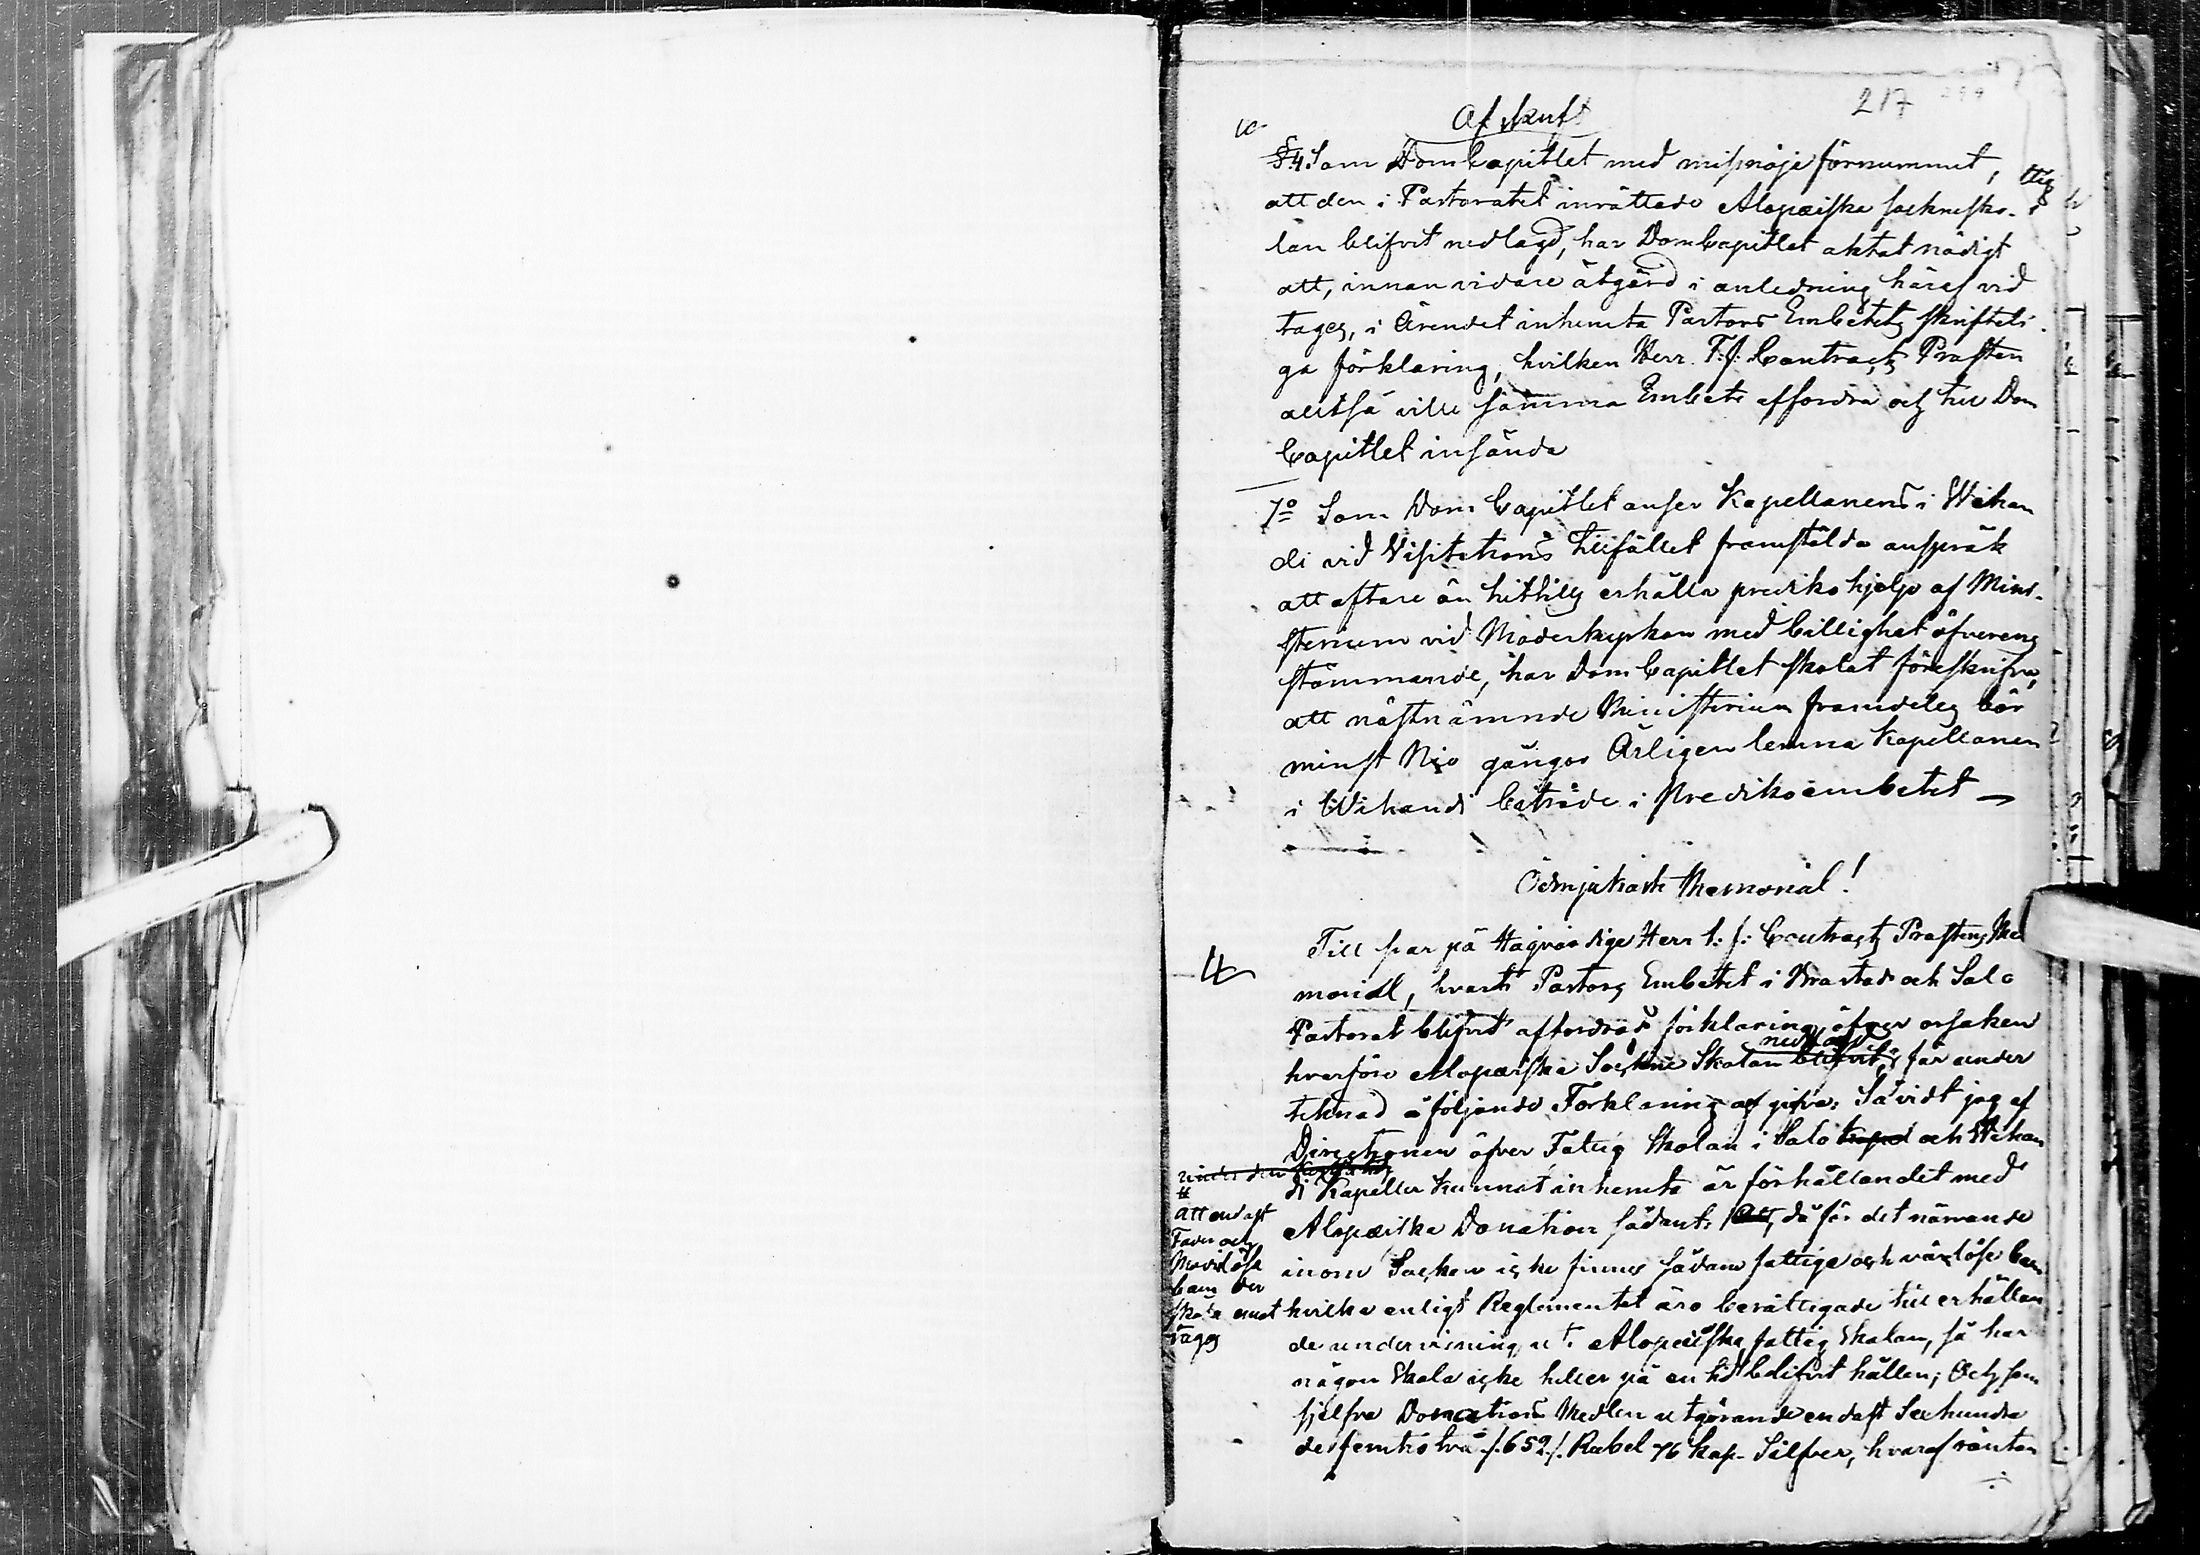 217
Afskrift
§4. Som DomCapitlet med misnöje förnummit,
att den i Pastoratet inrättade Alopæiska socknesko-
lan blifvit nedlagd, har DomCapitlet aktat nödigt
att, innan vidare åtgärd i anledning häraf vid
tages, i Ärendet inhemta Pastors Embetets skriftli-
ga förklaring, hvilken Herr T:f: Contracts Prosten
altså ville samma Embete affordra och till Dom
Capitlet insända
7º Som DomCapitlet anser Kapellanens i Wihan
di vid Visitations tillfället framstälda anspråk
att oftare än hittills erhålla prediko hjelp af Mini-
sterium vid Moderkyrkan med billighet öfverens
stämmande, har DomCapitlet skolat föreskrifva,
att nästnämnde Ministerium framdeles bör
minst Nio gånger Årligen lemna Kapellanen
i Wihandi biträde i Predikoembetet
Ödmjukast Memorial!
Till svar på Högvördige Herr t: f: Contracts Prostens Me
morial, hvari Pastors Embetet i Brastad och Salo
Pastorat blifvit affordradt förklaring öfver orsaken
nedlagd
hvarföre Alopæiska Sockne Skolan blifvit, får under
teknad åföljande Förklaring afgifva: Så vidt jag af
Directionen öfver Fattig Skolan i Salo och Wihan
di Kapeller kunnat inhemta är förhållandet med
Alopæiska Donation sådant: Att, då för det närvarande
inom Socknen icke finnes sådane fattige och värnlöse barn
hvilka enligt Reglementet äro berättigade till erhållan
de undervisning uti Alopæiska fattig Skolan, så har
någon Skola icke heller på en tid blifvit hållen; Och som
sjelfva Donations Medlen utgörande endast Sexhundra
de femtiotvå /:652:/ Rubel 76 kop. Silfver, hvaraf räntan
#
att endast
Fader och
Moderlösa
barn der
skola emot
tages